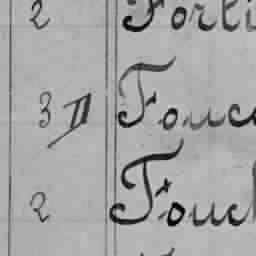 2 Forti
3 II Fouc
2 Fouc